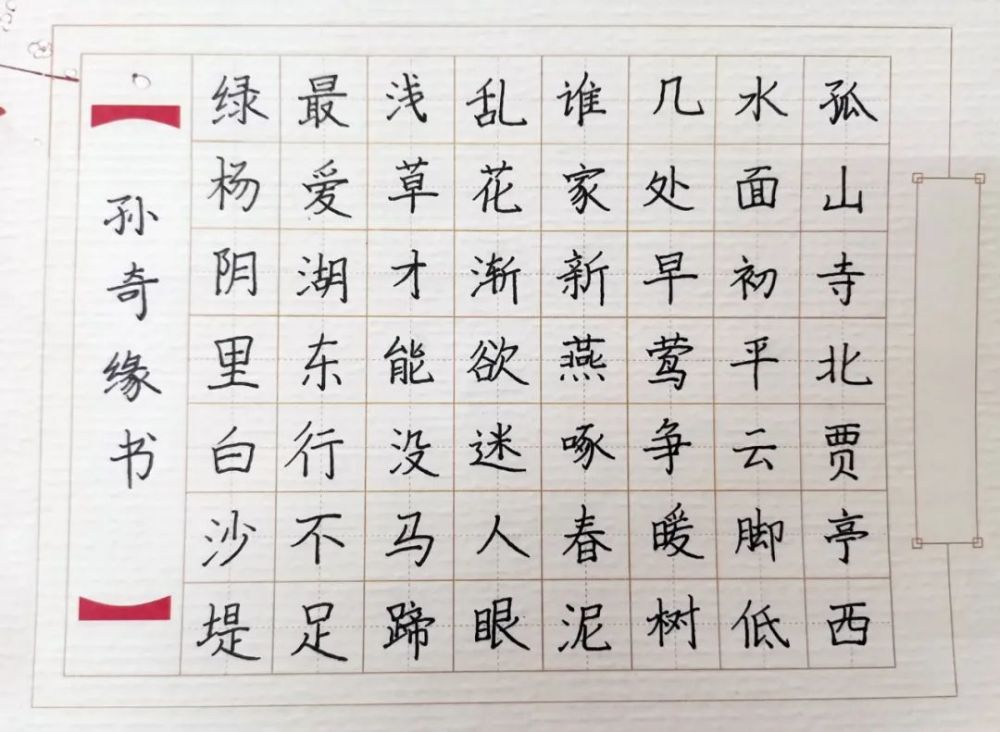 孤山寺北贾亭西
水面初平云脚低
几处早莺争暖树
谁家新燕啄春泥
乱花渐欲迷人眼
浅草才能没马蹄
最爱湖东行不足
绿杨阴里白沙堤
孙奇缘书